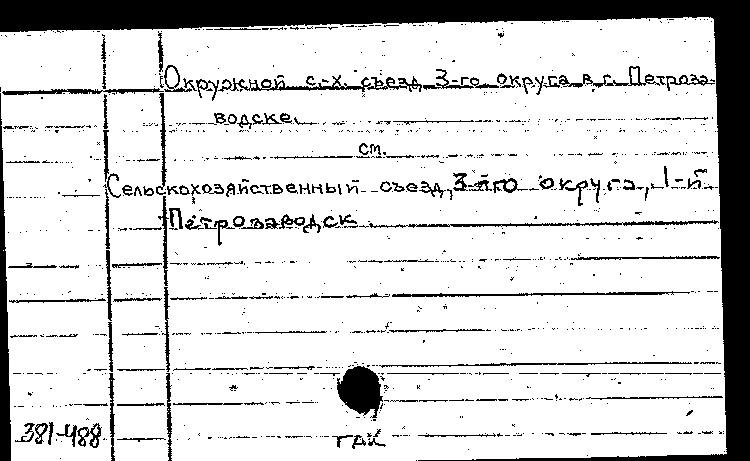 Окружной с.-х. съезд 3-го округа в г. Петроза-
водске.
см.
Сельскохозяйственный съезд, 3-го округа, 1-й
Петрозаводск.
381-488
ГАК